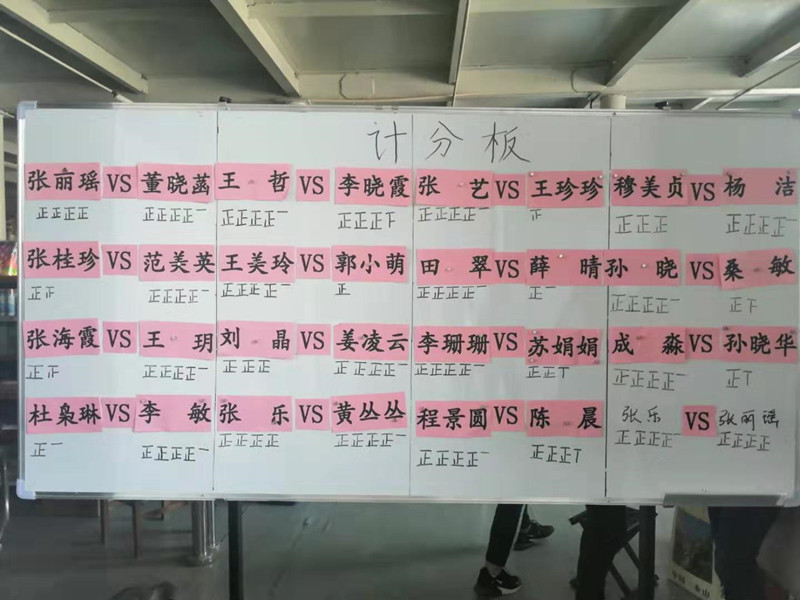 计分板
张丽瑶 VS 董晓菡 王哲 VS 李晓霞 张艺 VS 王珍珍 穆美贞 VS 杨洁
正正正正 正正正正一 正正正正一 正正正下 正正正正一 正正正 正正正正一
张桂珍 VS 范美英 王美玲 VS 郭小萌 田翠 VS 薛晴 孙晓 VS 桑敏
正正 正正正正一 正正正正一 正 正正正正一 正一 正正正正一 正下
张海霞 VS 王玥 刘晶 VS 姜凌云 李珊珊 VS 苏娟娟 成淼 VS 孙晓华
正 正正正正一 正正正 正正正正一 正正正正一 正正丅 正正正正一 正丅
杜枭琳 VS 李敏 张乐 VS 黄丛丛 程景圆 VS 陈晨 张乐 VS 张丽瑶
正一 正正正正一 正正正正 正正正正一 正正正正一 正正正丅 正正正正一 正正正正